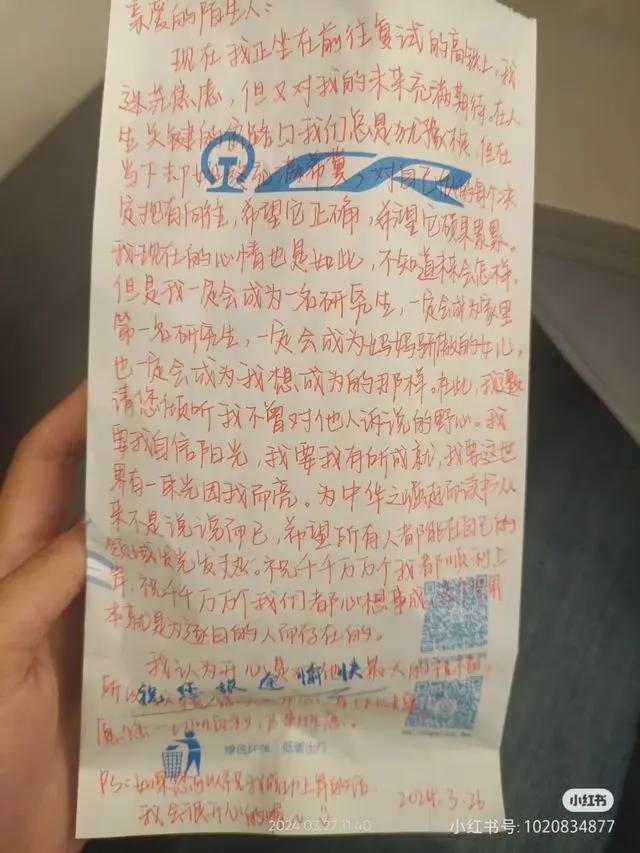 亲爱的陌生人：
现在我正坐在前往复试的高铁上，我
迷茫焦虑，但又对我的未来充满期待。在人
生关键的 路口我们总是犹豫不 但在
当下却 满希冀，对自己 的每个决
定抱有向往，希望它正确，希望它硕果累累。
我现在的心情也是如此，不知道未来会怎样，
但是我一定会成为一名研究生，一定会成为家里
第一名研究生，一定会成为妈妈骄傲的女儿，
也一定会成为我想成为的那样。在此，我
请您倾听我不曾对他人诉说的野心。我
要我自信阳光，我要我有所成就，我要这世
界有一束光因我而亮。为中华之崛起而读书从
来不是说说而已，希望所有人都能在自己的
领域发光发热。祝千千万万个我都顺利上
岸，祝千千万万个我们都心想事成
本就是为逐日的人而存在的。
我认为开心是 最大的
所以
祝您旅途愉快
愿您一
绿色环保 低碳出行
PS：如果您 我成功上岸的话
我会很开心的
2024.3.26
2024.03.27 11:40
小红书
小红书号: 1020834877